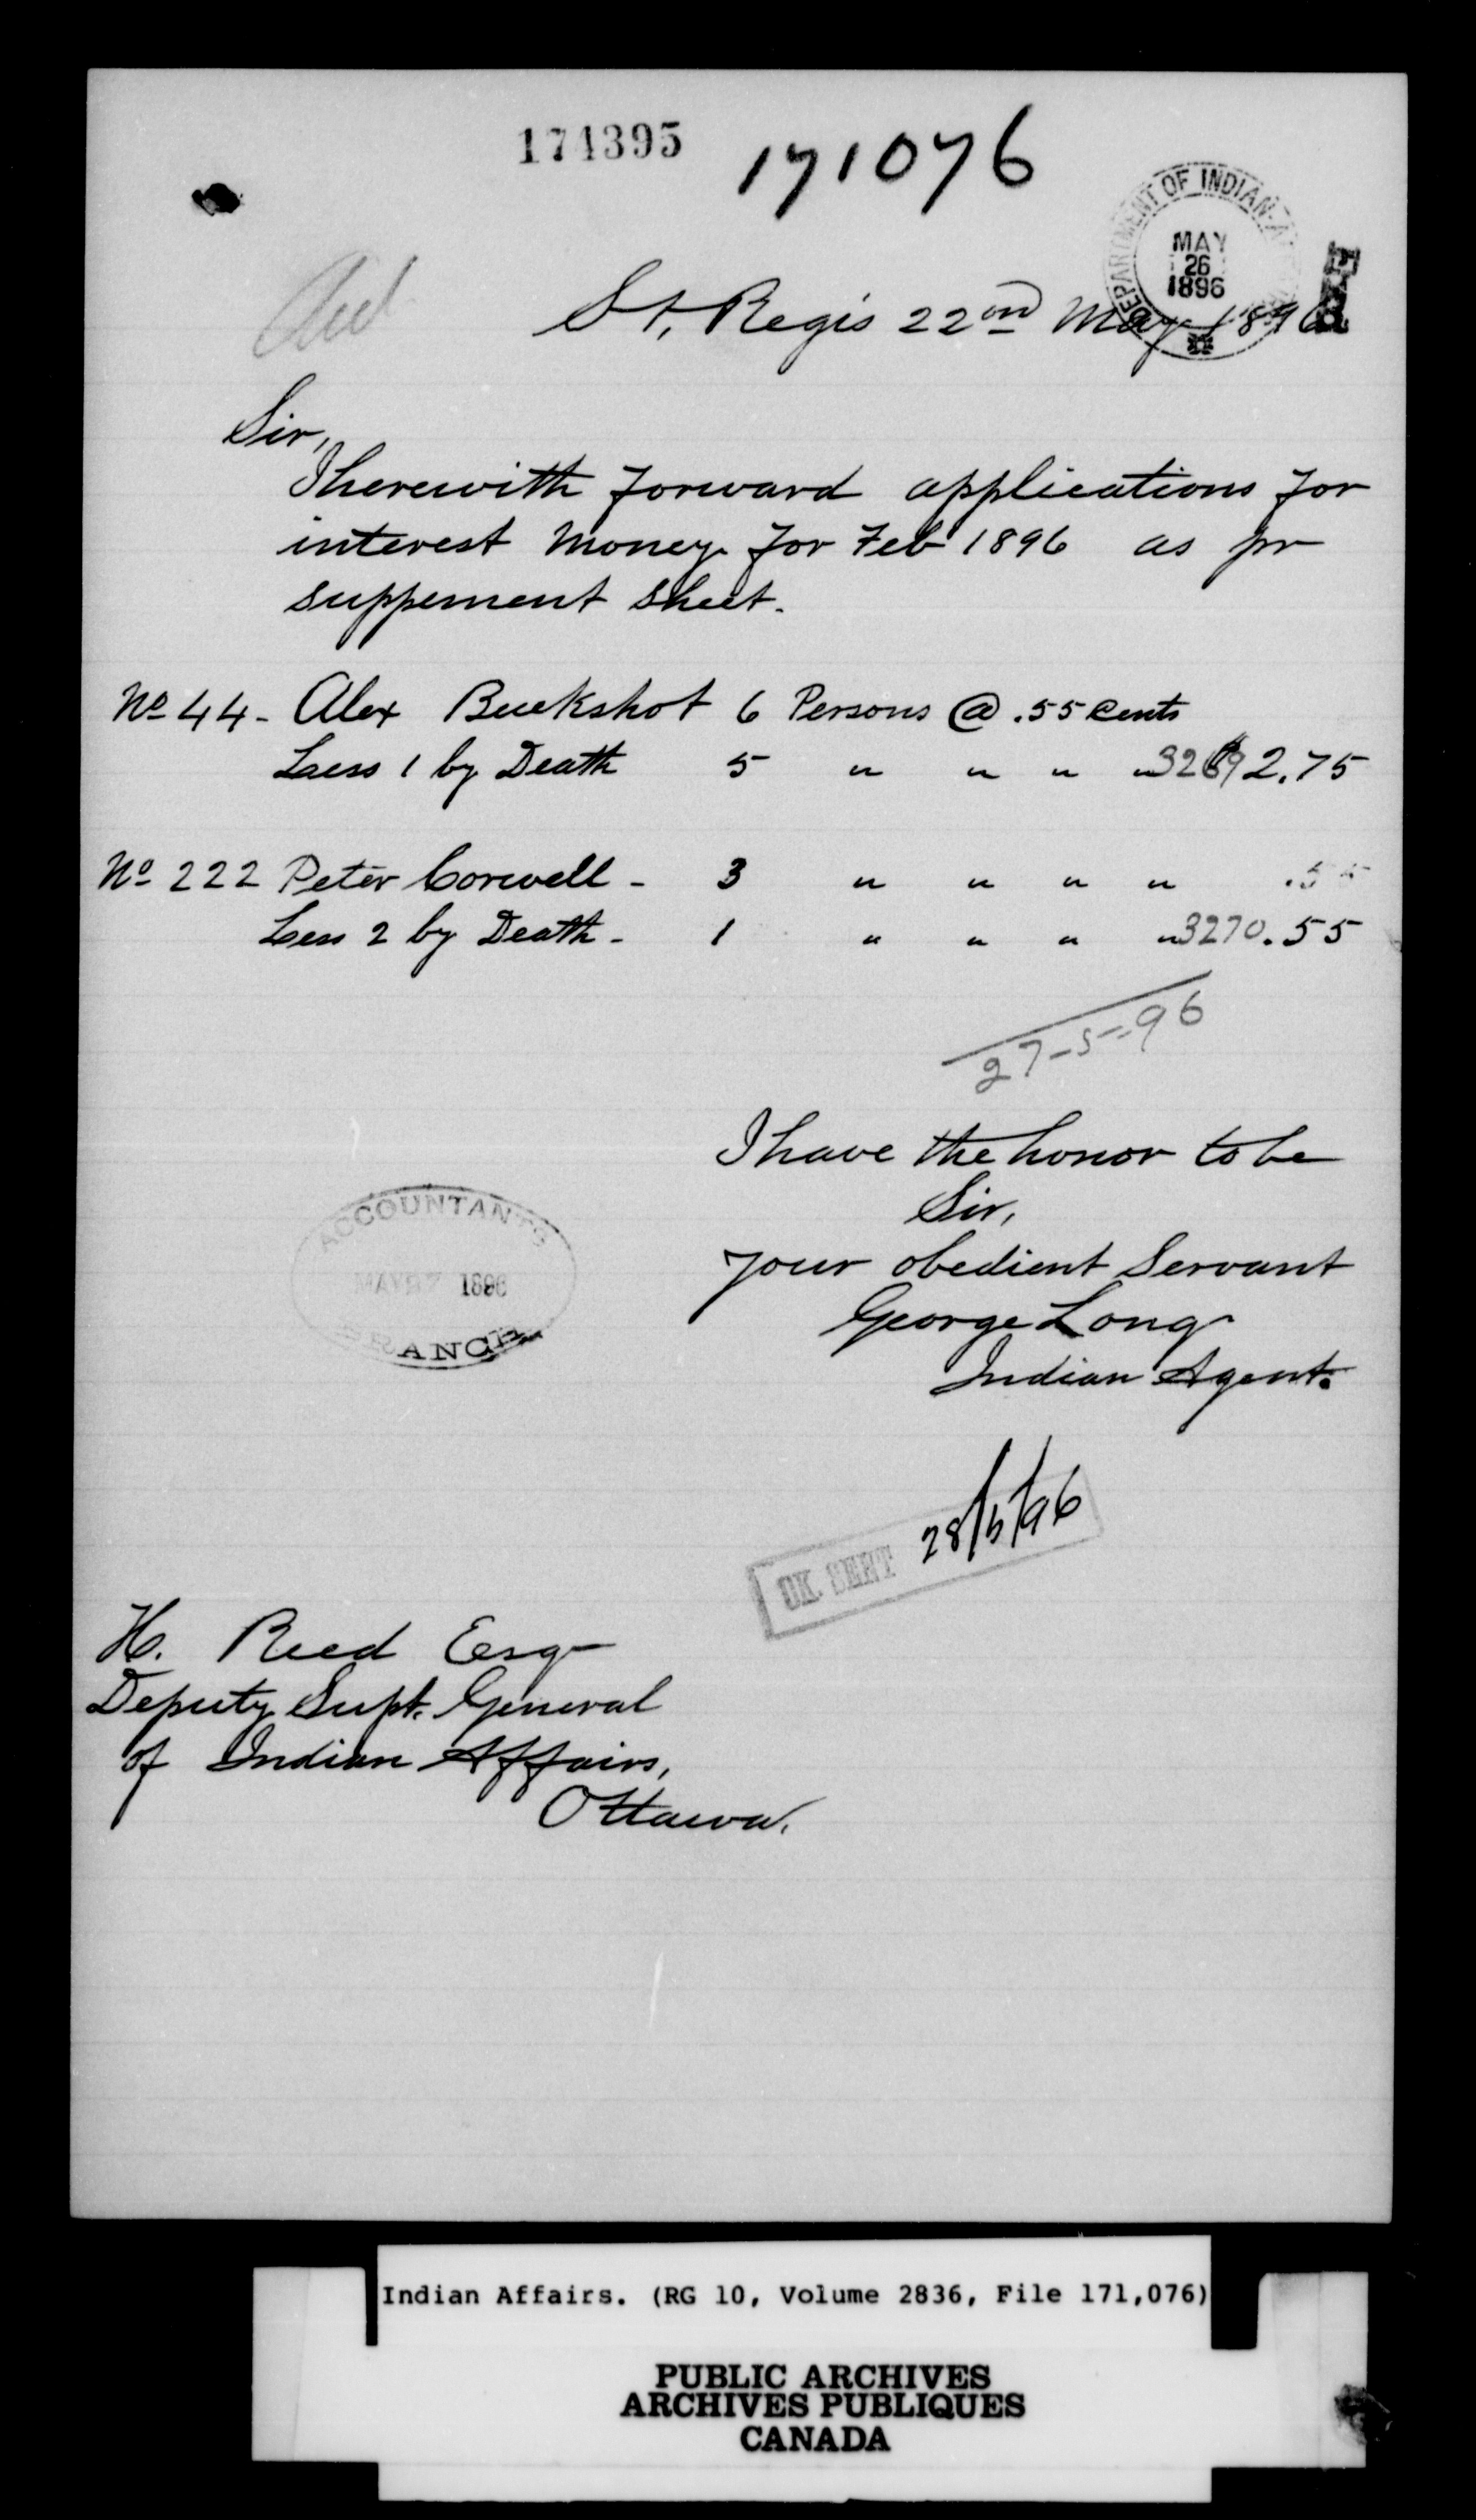 174395 171076
DEPARTMENT OF INDIAN
MAY
26
1896
St. Regis 22nd May 1896
Sir,
I herewith forward applications for
interest money for Feb 1896 as pr
suppement sheet.
No 44 - Alex Buckshot 6 Persons @ .55 Cents
Less 1 by Death 5 " " " " 3269 2.75
No 222 Peter Corwell - 3 " " " " .55
Less 2 by Death - 1 " " " " 3270 .55
27-5-96
I have the honor to be
Sir,
your obedient Servant
George Long
Indian Agent.
ACCOUNTANTS
MAY 27 1896
BRANCH
CK. SENT 28/5/96
H. Reed Esq
Deputy Supt. General
of Indian Affairs,
Ottawa.
Indian Affairs. (RG 10, Volume 2836, File 171,076)
PUBLIC ARCHIVES
ARCHIVES PUBLIQUES
CANADA